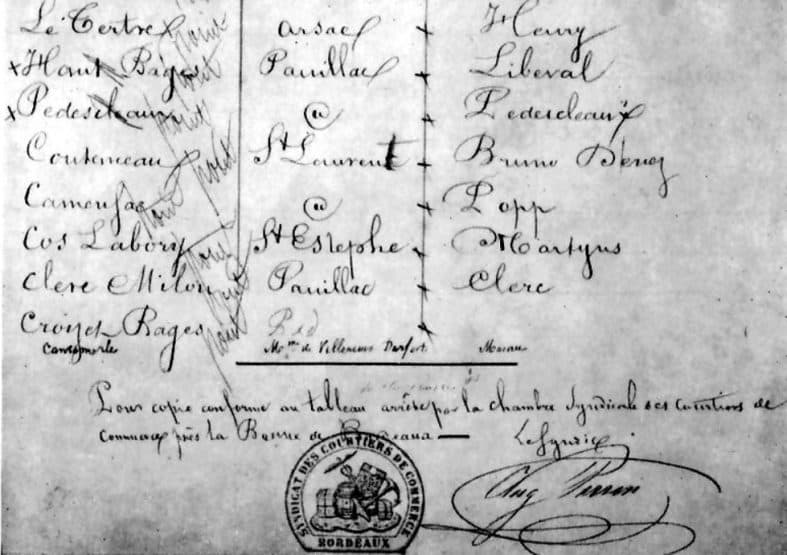 Le Tertre Arsac Henry
x Haut Bages Pauillac Liberal
x Pedesclaux @ Pedesclaux
Coutenceau St Laurent Bruno Devez
Camensac @ Popp
Cos Labory St Estephe Martyns
Clerc Milon Pauillac Clerc
Croizet Bages
Cantemerle Mme de Villeneuve Durfort. Macau
Pour copie conforme au tableau arrêté par la chambre Syndicale des Courtiers de
Commerce près la Bourse de Bordeaux —
Le Syndic
SYNDICAT DES COURTIERS DE COMMERCE
BORDEAUX